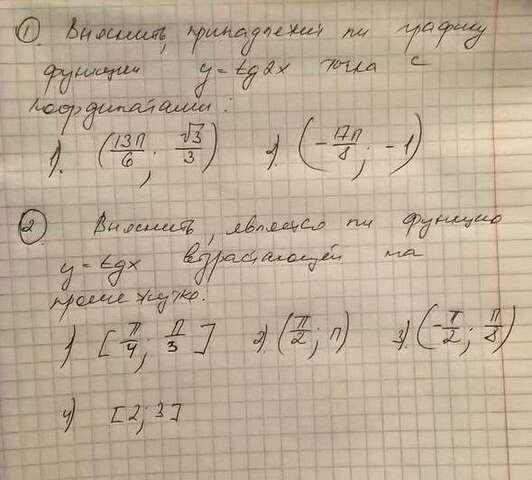 ① Выяснить, принадлежит ли графику
функции y = tg2x точка с
координатами:
1). (13π/6; √3/3) 2). (-17π/8; -1)
② Выяснить, является ли функция
y = tgx возрастающей на
промежутке.
1). [π/4; π/3] 2). (π/2; π) 3). (-π/2; π/8)
4) [2; 3]